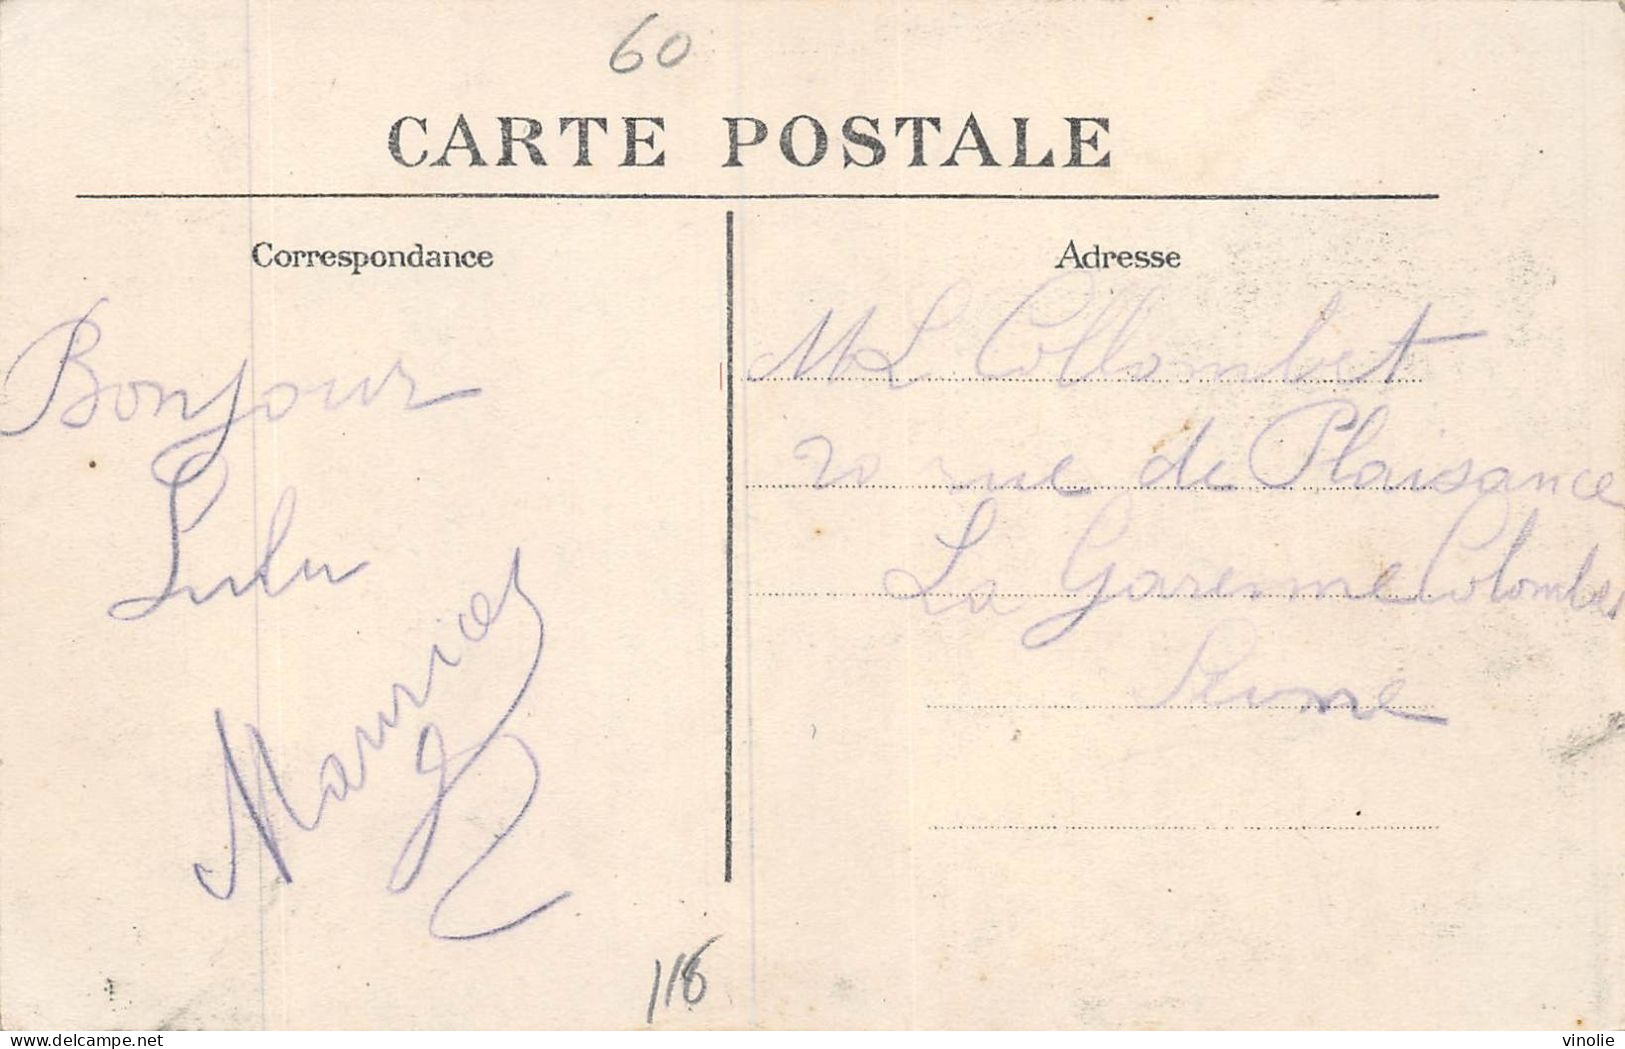 60
CARTE POSTALE
Correspondance
Adresse
Bonjour
Lulu
Maurice
M L Collombet
20 rue de Plaisance
La Garenne Colombes
Seine
118
www.delcampe.net
vinolie